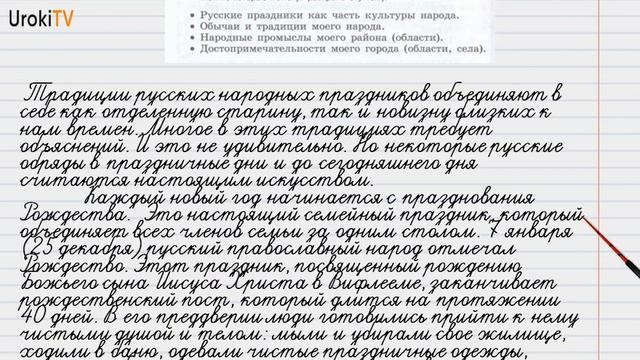 UrokiTV
• Русские праздники как часть культуры народа.
• Обычаи и традиции моего народа.
• Народные промыслы моего района (области).
• Достопримечательности моего города (области, села).
Традиции русских народных праздников объединяют в
себе как отделенную старину, так и новизну близких к
нам времен. Многое в этих традициях требует
объяснений. И это не удивительно. Но некоторые русские
обряды в праздничные дни и до сегодняшнего дня
считаются настоящим искусством.
Каждый новый год начинается с празднования
Рождества. Это настоящий семейный праздник, который
объединяет всех членов семьи за одним столом. 7 января
(25 декабря) русский православный народ отмечал
Рождество. Этот праздник, посвященный рождению
Божьего сына Иисуса Христа в Вифлееме, заканчивает
рождественский пост, который длится на протяжении
40 дней. В его преддверии люди готовились прийти к нему
чистыму душой и телом: мыли и убирали свое жилище,
ходили в баню, одевали чистые праздничные одежды,